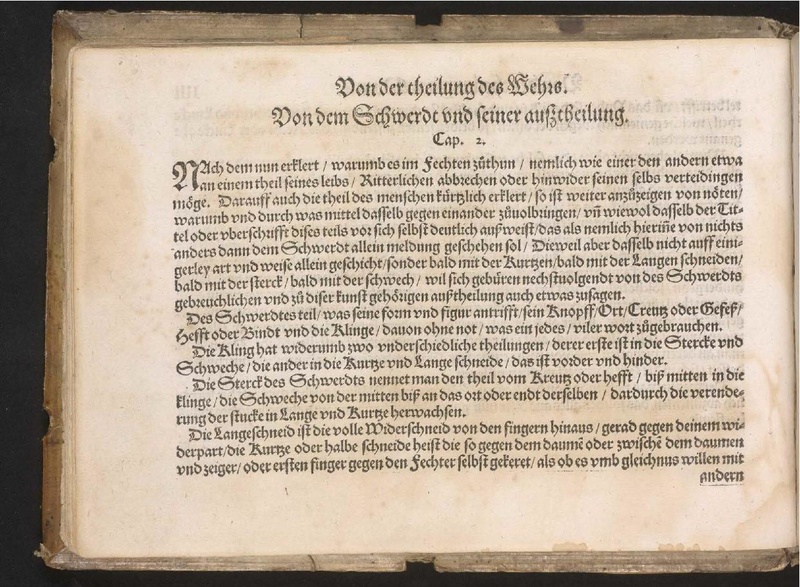 Von der theilung des Wehrs.
Von dem Schwerdt vnd seiner außtheilung.
Cap. 2.
NAch dem nun erklert / warumb es im Fechten zůthun / nemlich wie einer den andern etwa
an einem theil seines leibs / Ritterlichen abbrechen oder hinwider seinen selbs verteidingen
möge. Darauff auch die theil des menschen kürtzlich erklert / so ist weiter anzůzeigen von nöten /
warumb vnd durch was mittel dasselb gegen einander zůuolbringen / vñ wiewol dasselb der Tit-
tel oder vberschrifft dises teils vor sich selbst deutlich außweist / das als nemlich hieriñe von nichts
anders dann dem Schwerdt allein meldung geschehen sol / Dieweil aber dasselb nicht auff eini-
gerley art vnd weise allein geschicht / sonder bald mit der Kurtzen / bald mit der Langen schneiden /
bald mit der sterck / bald mit der schwech / wil sich gebüren nechstuolgendt von des Schwerdts
gebreuchlichen vnd zů diser kunst gehörigen außtheilung auch etwas zusagen.
Des Schwerdtes teil / was seine form vnd figur antrifft / sein Knopff / Ort / Creutz oder Gefeß /
Hefft oder Bindt vnd die Klinge / dauon ohne not / was ein jedes / viler wort zůgebrauchen.
Die Kling hat widerumb zwo vnderschiedliche theilungen / derer erste ist in die Stercke vnd
Schweche / die ander in die Kurtze vnd Lange schneide / das ist vorder vnd hinder.
Die Sterck des Schwerdts nennet man den theil vom Kreutz oder hefft / biß mitten in die
klinge / die Schweche von der mitten biß an das ort oder endt derselben / dardurch die verende-
rung der stucke in Lange vnd Kurtze herwachsen.
Die Langeschneid ist die volle Widerschneid von den fingern hinaus / gerad gegen deinem wi-
derpart / die Kurtze oder halbe schneide heist die so gegen dem daumē oder zwischē dem daumen
vnd zeiger / oder ersten finger gegen den Fechter selbst gekeret / als ob es vmb gleichnus willen mit
andern